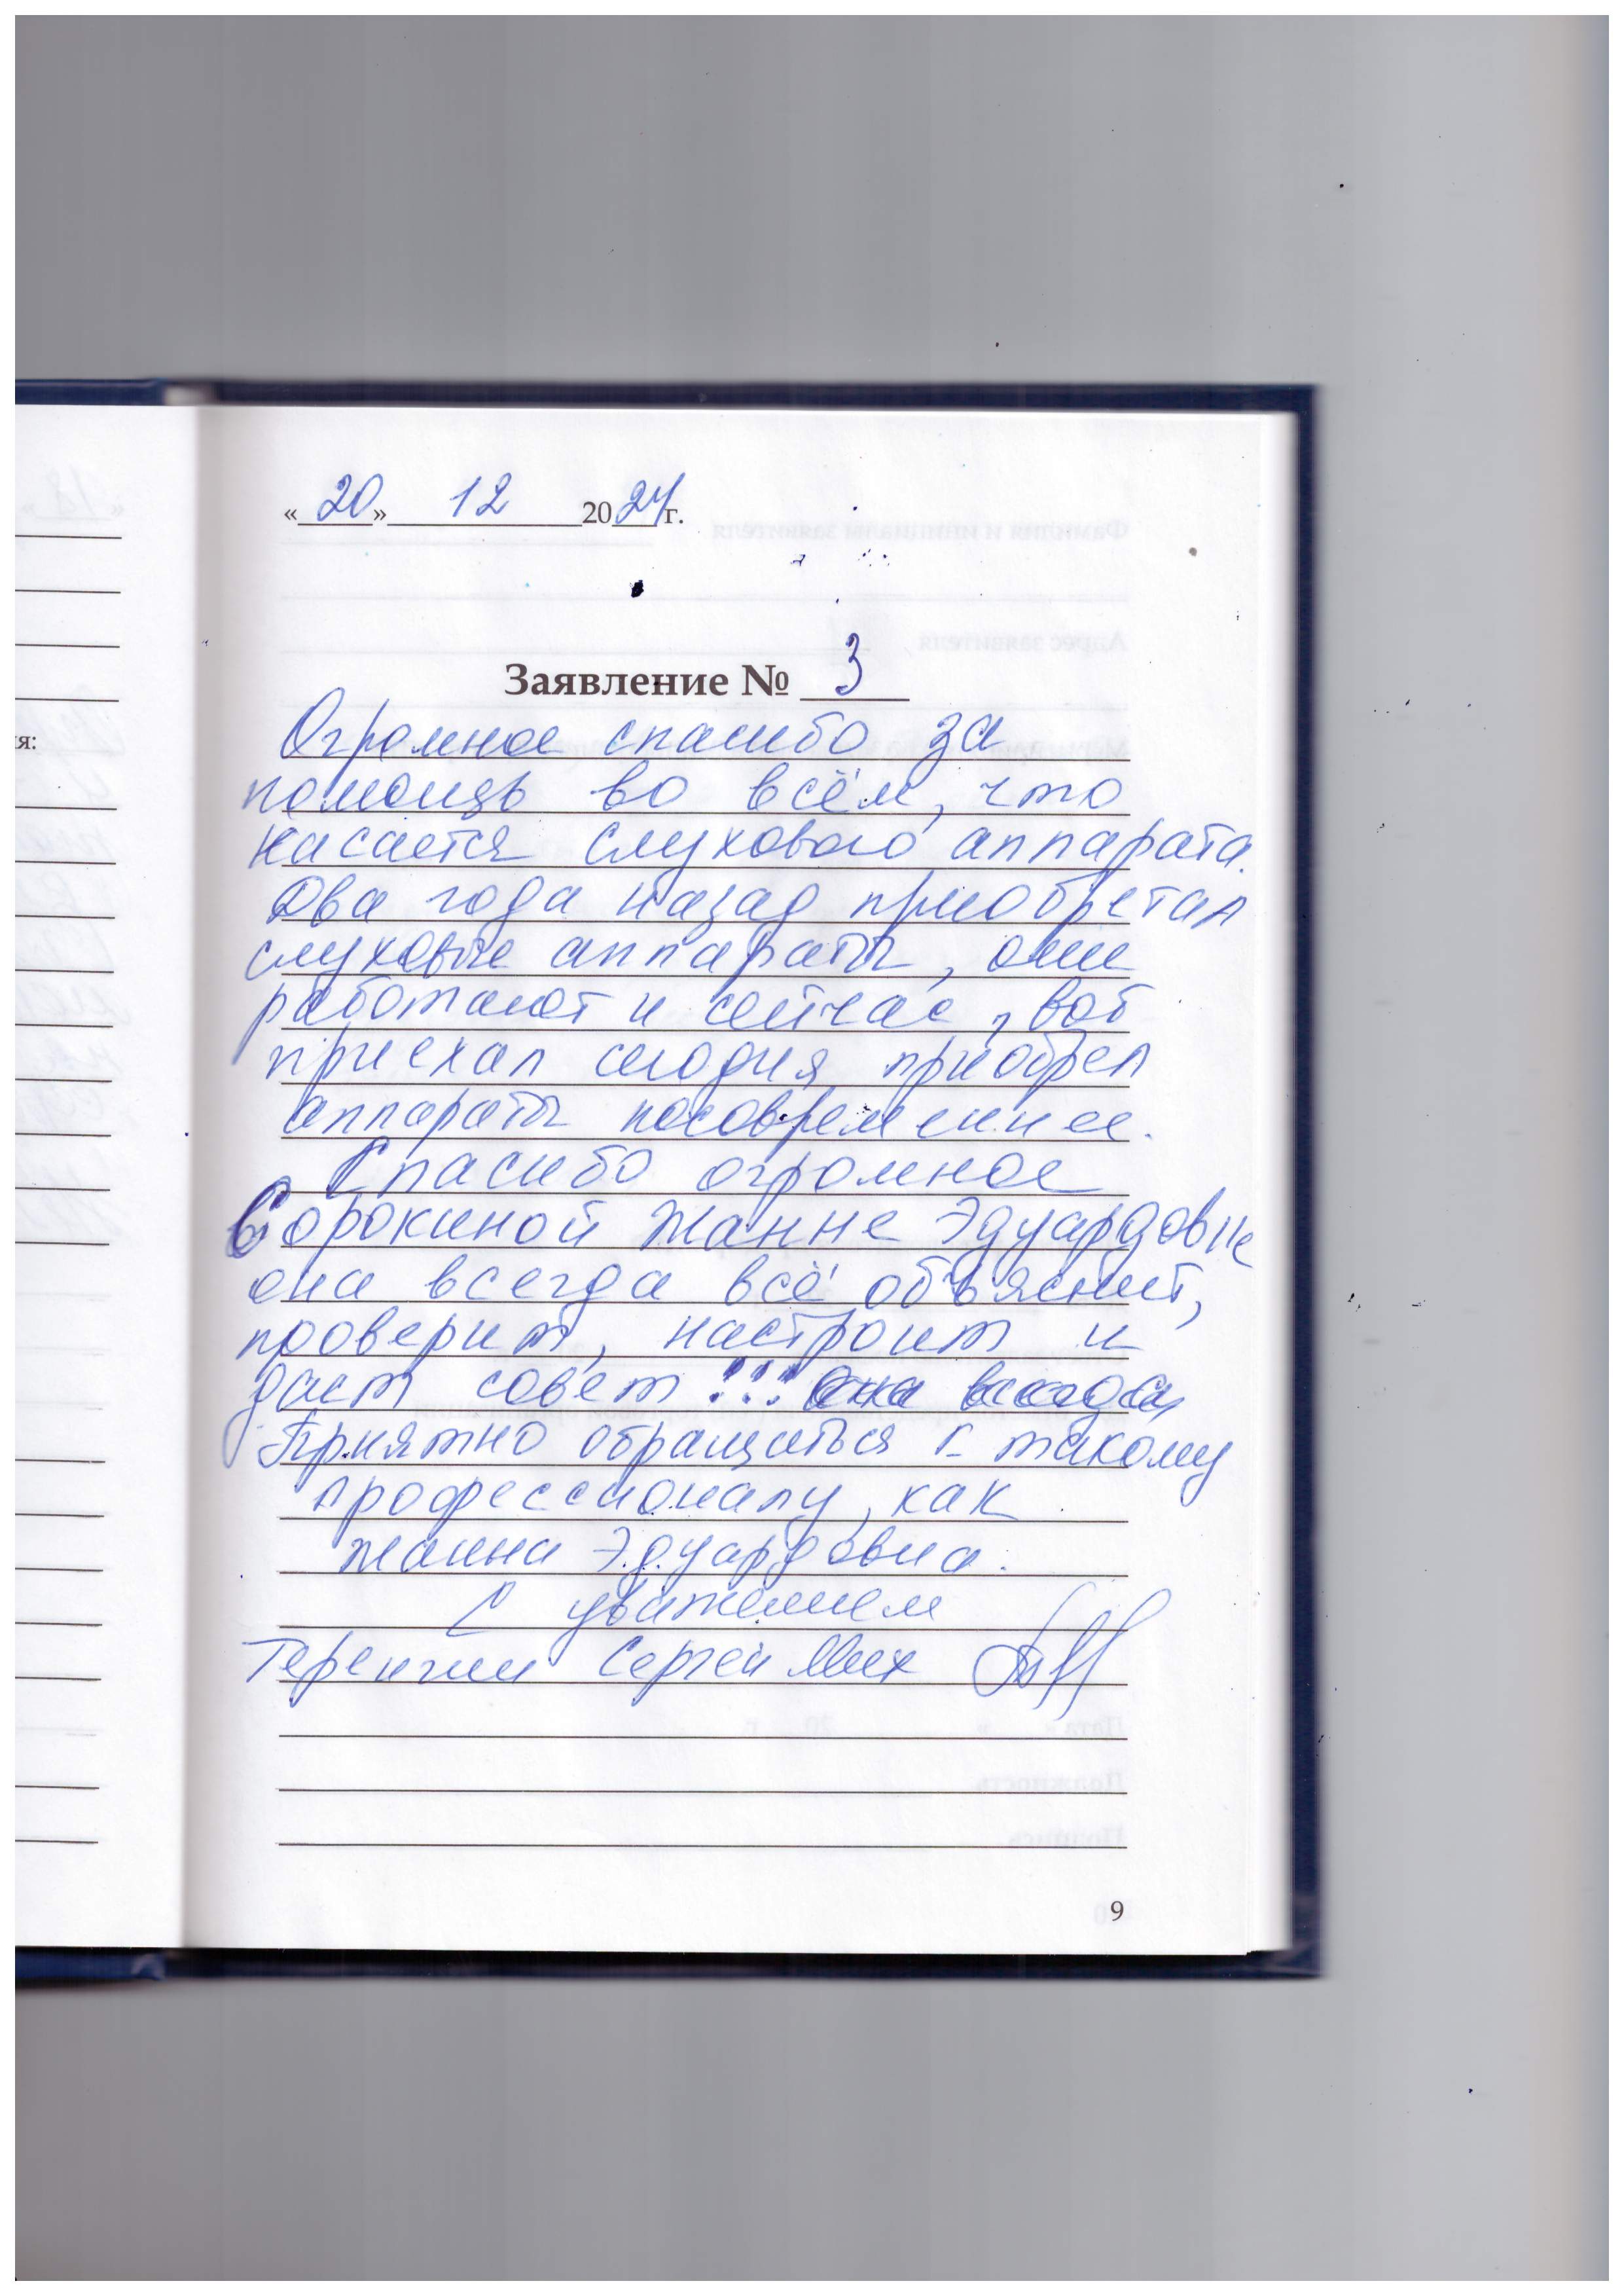 «20» 12 2024 г.
Заявление № 3
Огромное спасибо за
помощь во всём, что
касается слухового аппарата.
Два года назад приобретал
слуховые аппараты, они
работают и сейчас, вот
приехал сегодня приобрел
аппараты посовременнее.
Спасибо огромное
Сорокиной Жанне Эдуардовне
она всегда всё объяснит,
проверит, настроит и
даст совет!!!
Приятно обращаться к такому
профессионалу, как
Жанна Эдуардовна.
С уважением
Сергей Мих
я:
9